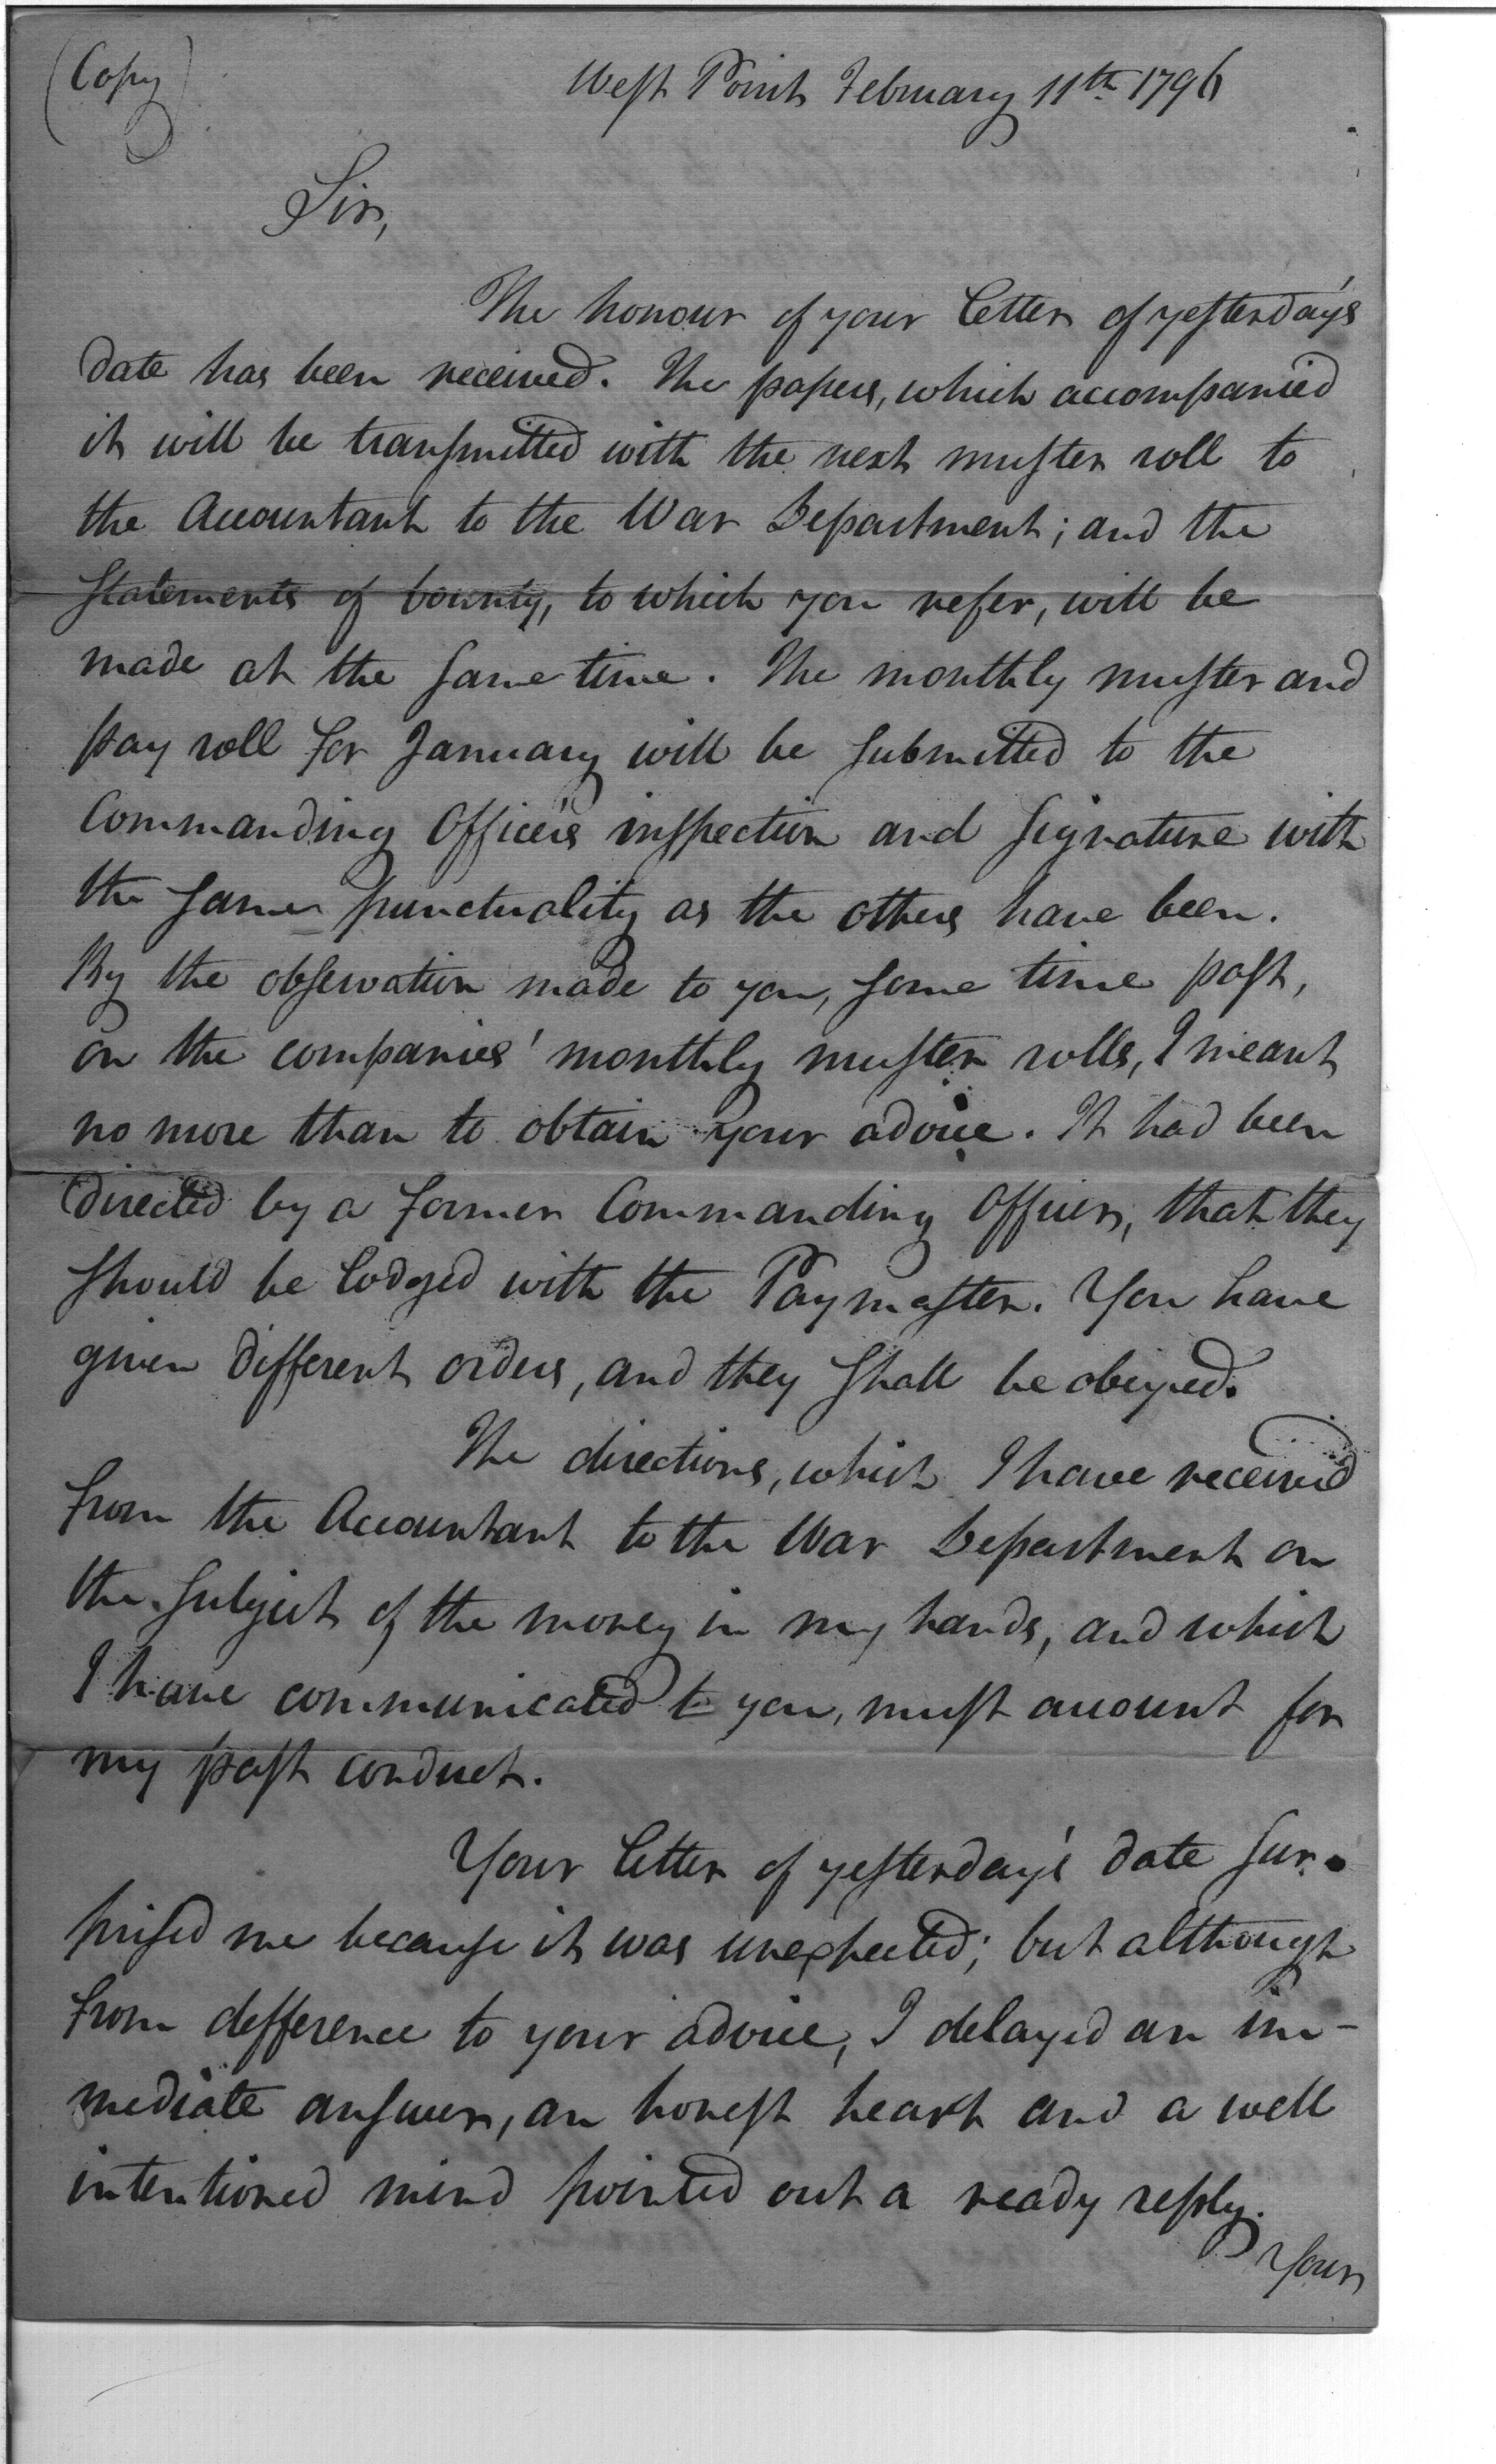 (Copy)
West Point February 11th 1796
Sir,
The honour of your letter of yesterday's
date has been received. The papers, which accompanied
it will be transmitted with the next muster roll to
the Accountant to the War Department; and the
statements of bounty, to which you refer, will be
made at the same time. The monthly muster and
pay roll for January will be submitted to the
Commanding Officer's inspection and signature with
the same punctuality as the others have been.
By the observation made to you, some time past,
on the companies' monthly muster rolls, I meant
no more than to obtain your advice. It had been
directed by a former Commanding Officer, that they
should be lodged with the Paymaster. You have
given different orders, and they shall be obeyed.
The directions, which I have received
from the Accountant to the War Department on
the subject of the money in my hands, and which
I have communicated to you, must account for
my past conduct.
Your letter of yesterday's date sur-
prised me because it was unexpected; but although
from defference to your advice, I delayed an im-
mediate answer, an honest heart and a well
intentioned mind pointed out a ready reply.
Your